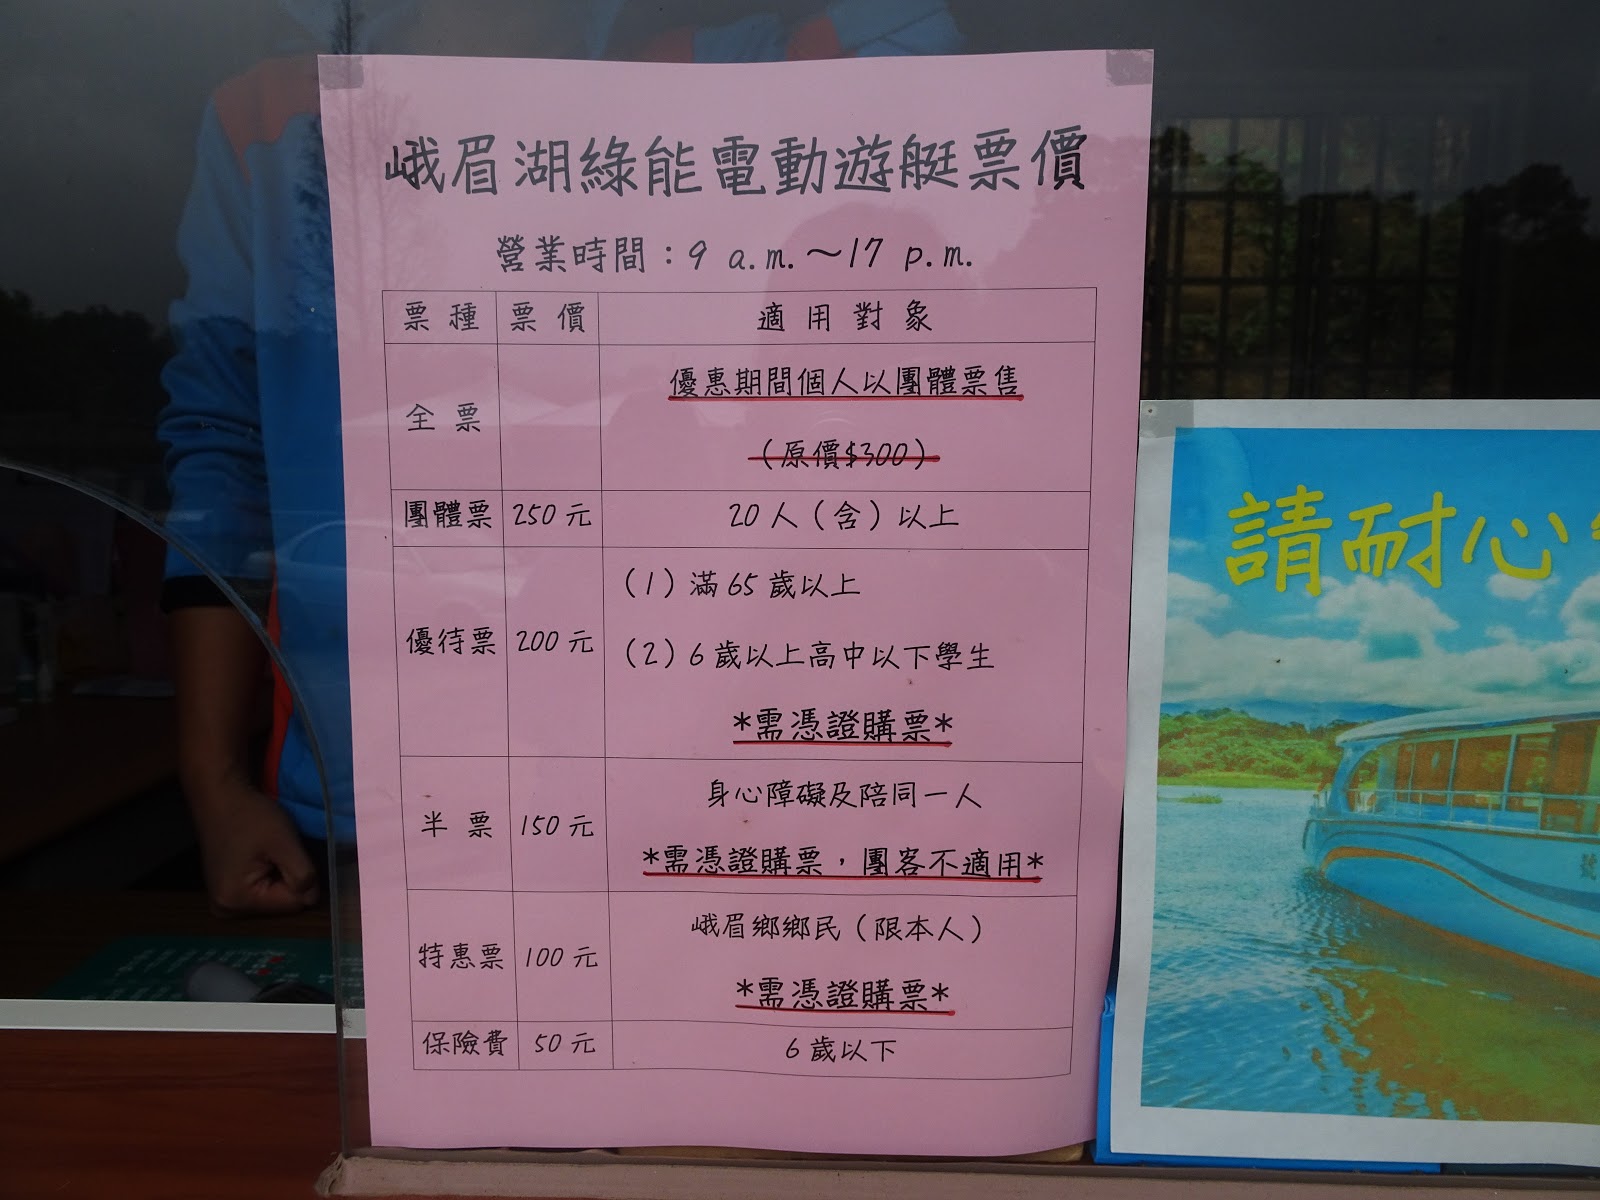 峨眉湖綠能電動遊艇票價
營業時間：9 a.m.～17 p.m.
票種 票價 適用對象
全票 優惠期間個人以團體票售
（原價$300）
團體票 250元 20人（含）以上
優待票 200元 （1）滿65歲以上
（2）6歲以上高中以下學生
*需憑證購票*
半票 150元 身心障礙及陪同一人
*需憑證購票，團客不適用*
特惠票 100元 峨眉鄉鄉民（限本人）
*需憑證購票*
保險費 50元 6歲以下
請耐心
號